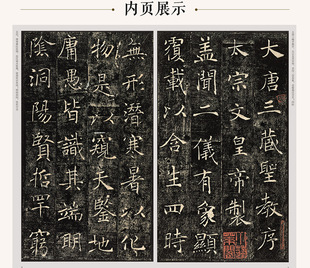 内页展示
大唐三藏聖教序
太宗文皇帝製
盖聞二儀有象顯
覆載以含生四時
無形潛寒暑以化
物是以窺天鑒地
庸愚皆識其端明
陰洞陽賢哲罕窮